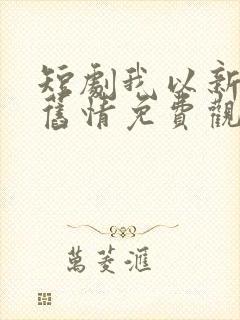 短劇我以新
舊情免費觀
萬菱滙